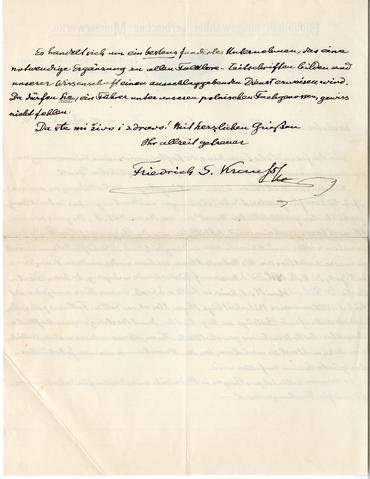 Es handelt sich um ein bestens fundirtes Unternehmen, das eine
notwendige Ergänzung zu allen Folklore-Zeitschriften bilden und
unserer Wissenschaft einen ausschlaggebenden Dienst erweisen wird.
Da dürfen Sie, ein Führer unter unseren polnischen Fachgenossen, gewiss
nicht fehlen.
Da ste mi živo i zdravo! Mit herzlichen Grüßen
Ihr allzeit getreuer
Friedrich S. Krauss